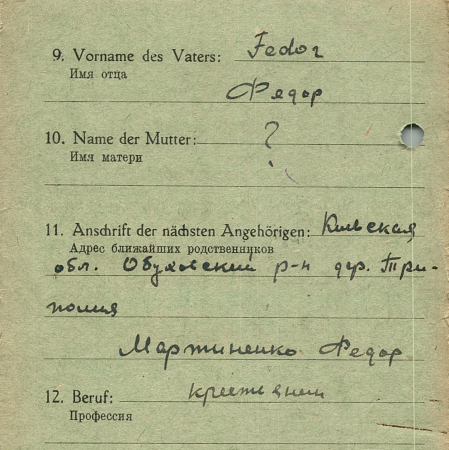 9. Vorname des Vaters: Fedor
Имя отца
Федор
10. Name der Mutter: ?
Имя матери
11. Anschrift der nächsten Angehörigen: Киевская
Адрес ближайших родственников
обл. Обуховский р-н дер. Три-
полия
Мартиненко Федор
12. Beruf: крестьянин
Профессия